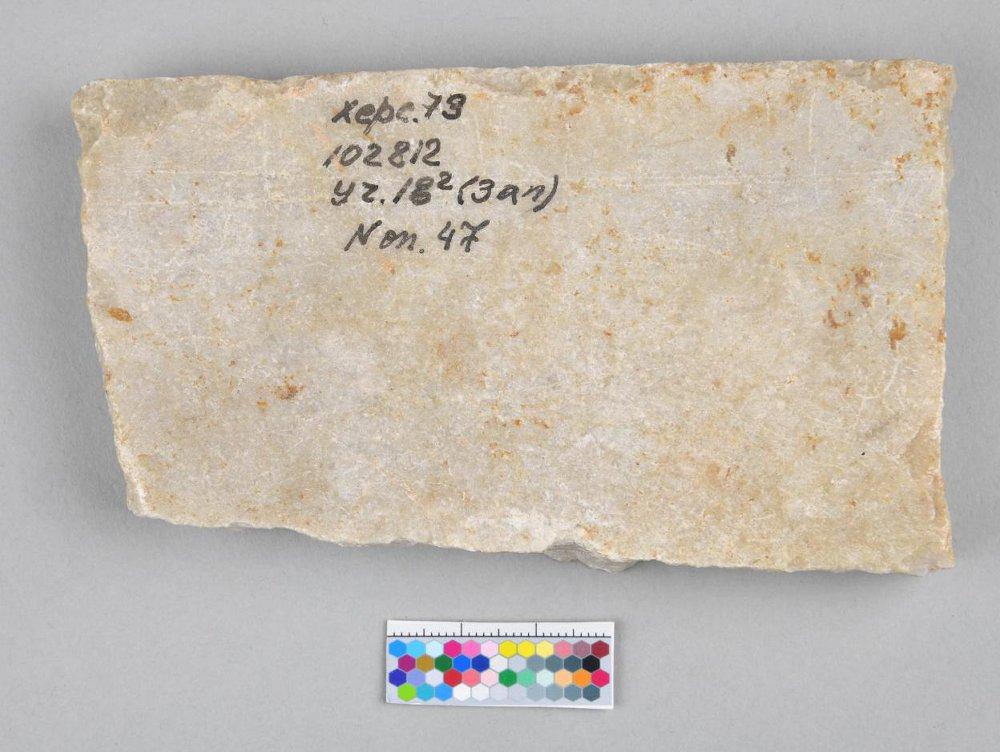 Херс.79
102812
уч.18² (Зап)
N оп. 47